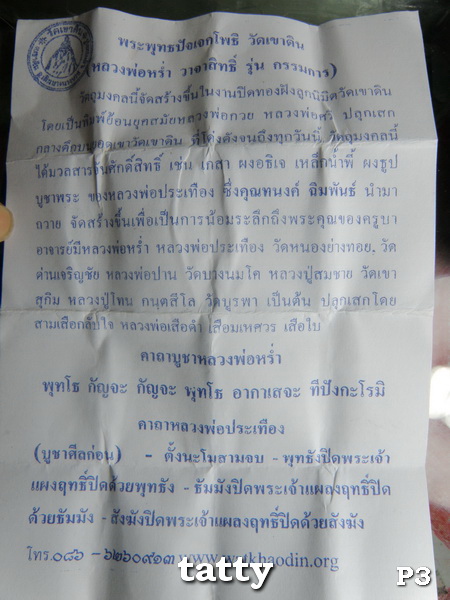 พระพุทธปัจเจกโพธิ วัดเขาดิน
(หลวงพ่อหร่ำ วาจาสิทธิ์ รุ่น กรรมการ)
วัตถุมงคลนี้จัดสร้างขึ้นในงานปิดทองฝังลูกนิมิตวัดเขาดิน
โดยเป็นพิมพ์ย้อนยุคสมัยหลวงพ่อกวย หลวงพ่อศรี ปลุกเสก
กลางคืนบนยอดเขาวัดเขาดิน ที่โด่งดังจนถึงทุกวันนี้ วัตถุมงคลนี้
ได้มวลสารอันศักดิ์สิทธิ์ เช่น เกสา ผงอธิเจ เหล็กน้ำพี้ ผงธูป
บูชาพระ ของหลวงพ่อประเทือง ซึ่งคุณทนงค์ ฉิมพันธ์ นำมา
ถวาย จัดสร้างขึ้นเพื่อเป็นการน้อมระลึกถึงพระคุณของครูบา
อาจารย์มีหลวงพ่อหร่ำ หลวงพ่อประเทือง วัดหนองย่างทอย. วัด
ด่านเจริญชัย หลวงพ่อปาน วัดบางนมโค หลวงปู่สมชาย วัดเขา
สุกิม หลวงปู่โทน กนฺตสีโล วัดบูรพา เป็นต้น ปลุกเสกโดย
สามเสือกลับใจ หลวงพ่อเสือดำ เสือมเหศวร เสือใบ
คาถาบูชาหลวงพ่อหร่ำ
พุทโธ กัญจะ กัญจะ พุทโธ อากาเสจะ ทีปังกะโรมิ
คาถาหลวงพ่อประเทือง
(บูชาศีลก่อน) - ตั้งนะโมสามจบ - พุทธังปิดพระเจ้า
แผงฤทธิ์ปิดด้วยพุทธัง - ธัมมังปิดพระเจ้าแผลงฤทธิ์ปิด
ด้วยธัมมัง - สังฆังปิดพระเจ้าแผลงฤทธิ์ปิดด้วยสังฆัง
โทร.๐๘๖ - ๖๒๖๐๙๑๓ www.watkhaodin.org
tatty
P3